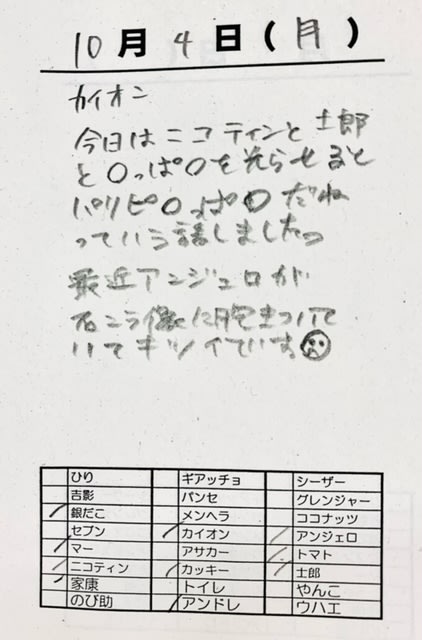 10月4日(月)
カイオン
今日はニコティンと士郎
と〇っぱ〇を光らせると
パリピ〇っぱ〇だね
っていう話しました。
最近アンジェロが
石ニラ像に抱きついて
いてキツイていす。
ひり ギアッチョ シーザー
吉影 パンセ グレンジャー
銀だこ メンヘラ ココナッツ
セブン カイオン アンジェロ
マー アサカー トマト
ニコティン カッキー 士郎
家康 トイレ やんこ
のび助 アンドレ ウハエ